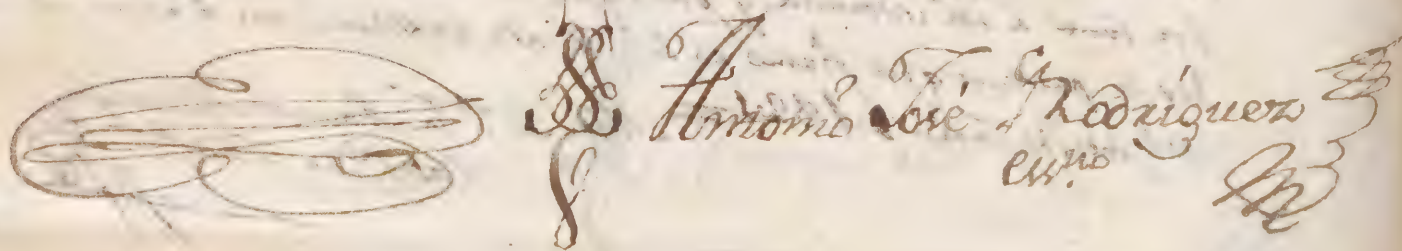 Antonio José Rodríguez
ess.no